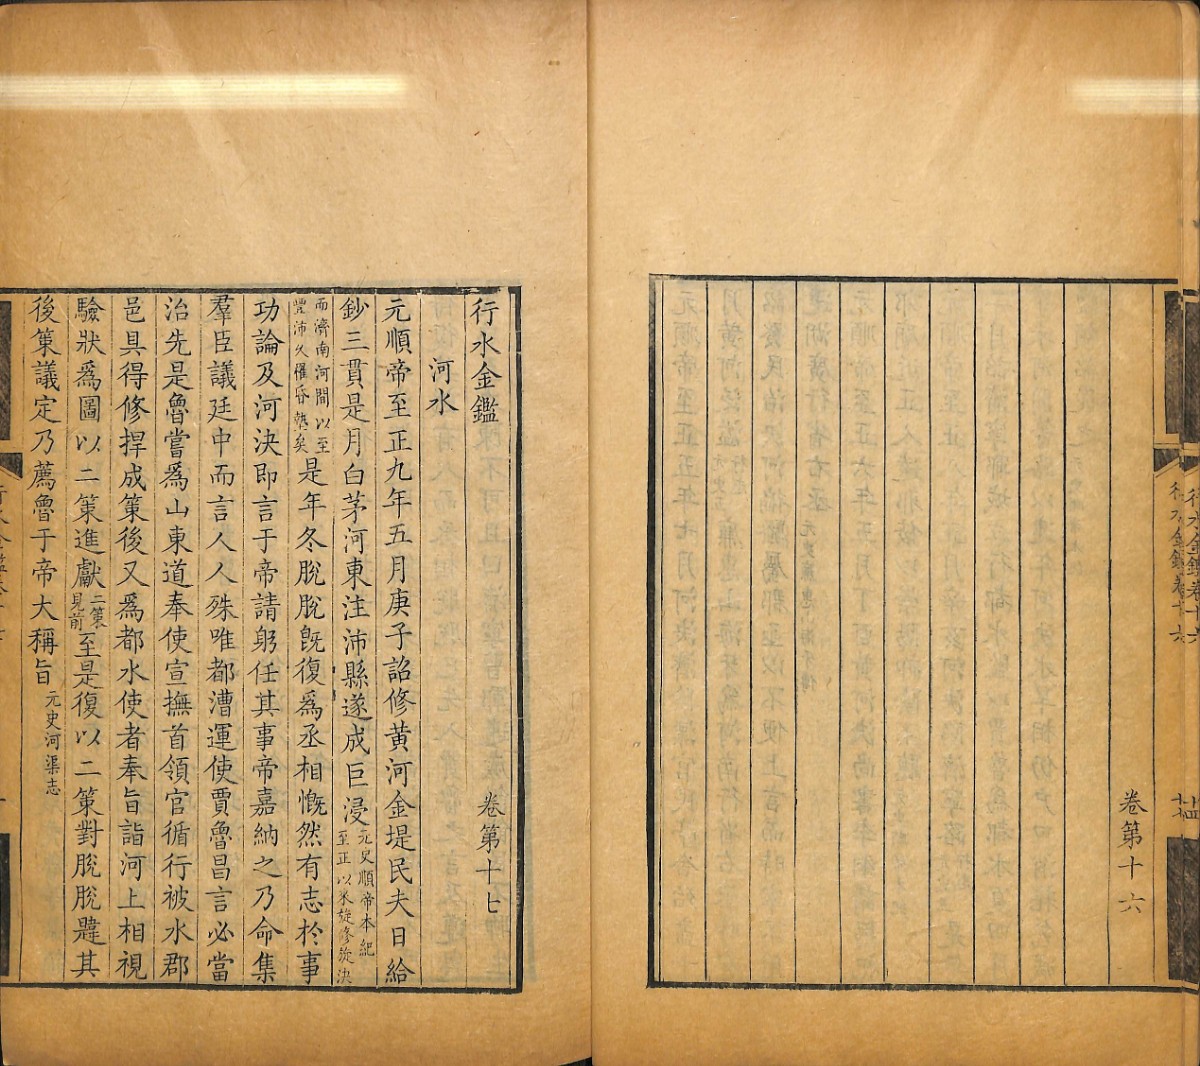 卷第十六
行水金鑑卷十六
行水金鑑　卷第十七
河水
元順帝至正九年五月庚子詔修黃河金堤民夫日給
鈔三貫是月白茅河東注沛縣遂成巨浸元史順帝本紀至正以來旋修旋決
而濟南河間以至豐沛久罹昏墊矣是年冬脫脫旣復爲丞相慨然有志於事
功論及河決即言于帝請躬任其事帝嘉納之乃命集
羣臣議廷中而言人人殊唯都漕運使賈魯昌言必當
治先是魯嘗爲山東道奉使宣撫首領官循行被水郡
邑具得修捍成策後又爲都水使者奉旨詣河上相視
驗狀爲圖以二策進獻二策見前至是復以二策對脫脫韙其
後策議定乃薦魯于帝大稱旨元史河渠志